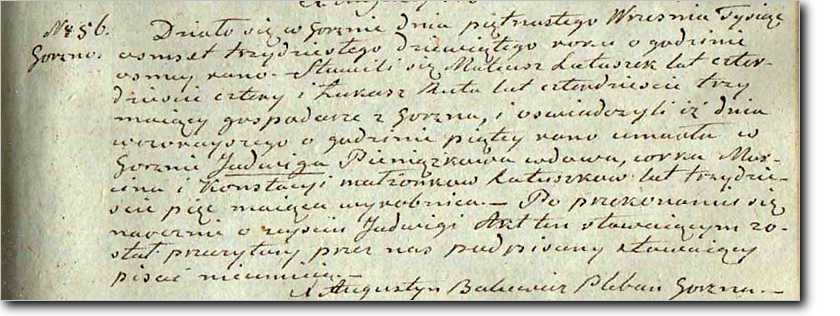 Nr 56. Działo się w Gorznie dnia piętnastego Wrzesnia Tysiąc
Gorzno. osmset trzydziestego dziewiątego roku o godzinie
osmey rano. - Stawili się Mateusz Łatuszek lat czter-
dziesci cztery i Łukasz Kuta lat czterdziesci trzy
maiący gospodarze z Gorzna, i oswiadczyli iż dnia
wczorayszego o godzinie piątey rano umarła w
Gorznie Jadwiga Pieniązkowa wdowa, corka Mar-
cina i Konstacyi małżonkow Łatuszkow lat trzydzie-
sci pięc maiąca wyrobnica. - Po przekonaniu się
naocznie o zeysciu Jadwigi Akt ten stawaiącym zo-
stał przeczytany przez nas podpisany stawaiący
pisać nieumieią. -
X Augustyn Balewicz Pleban Gorzna. -